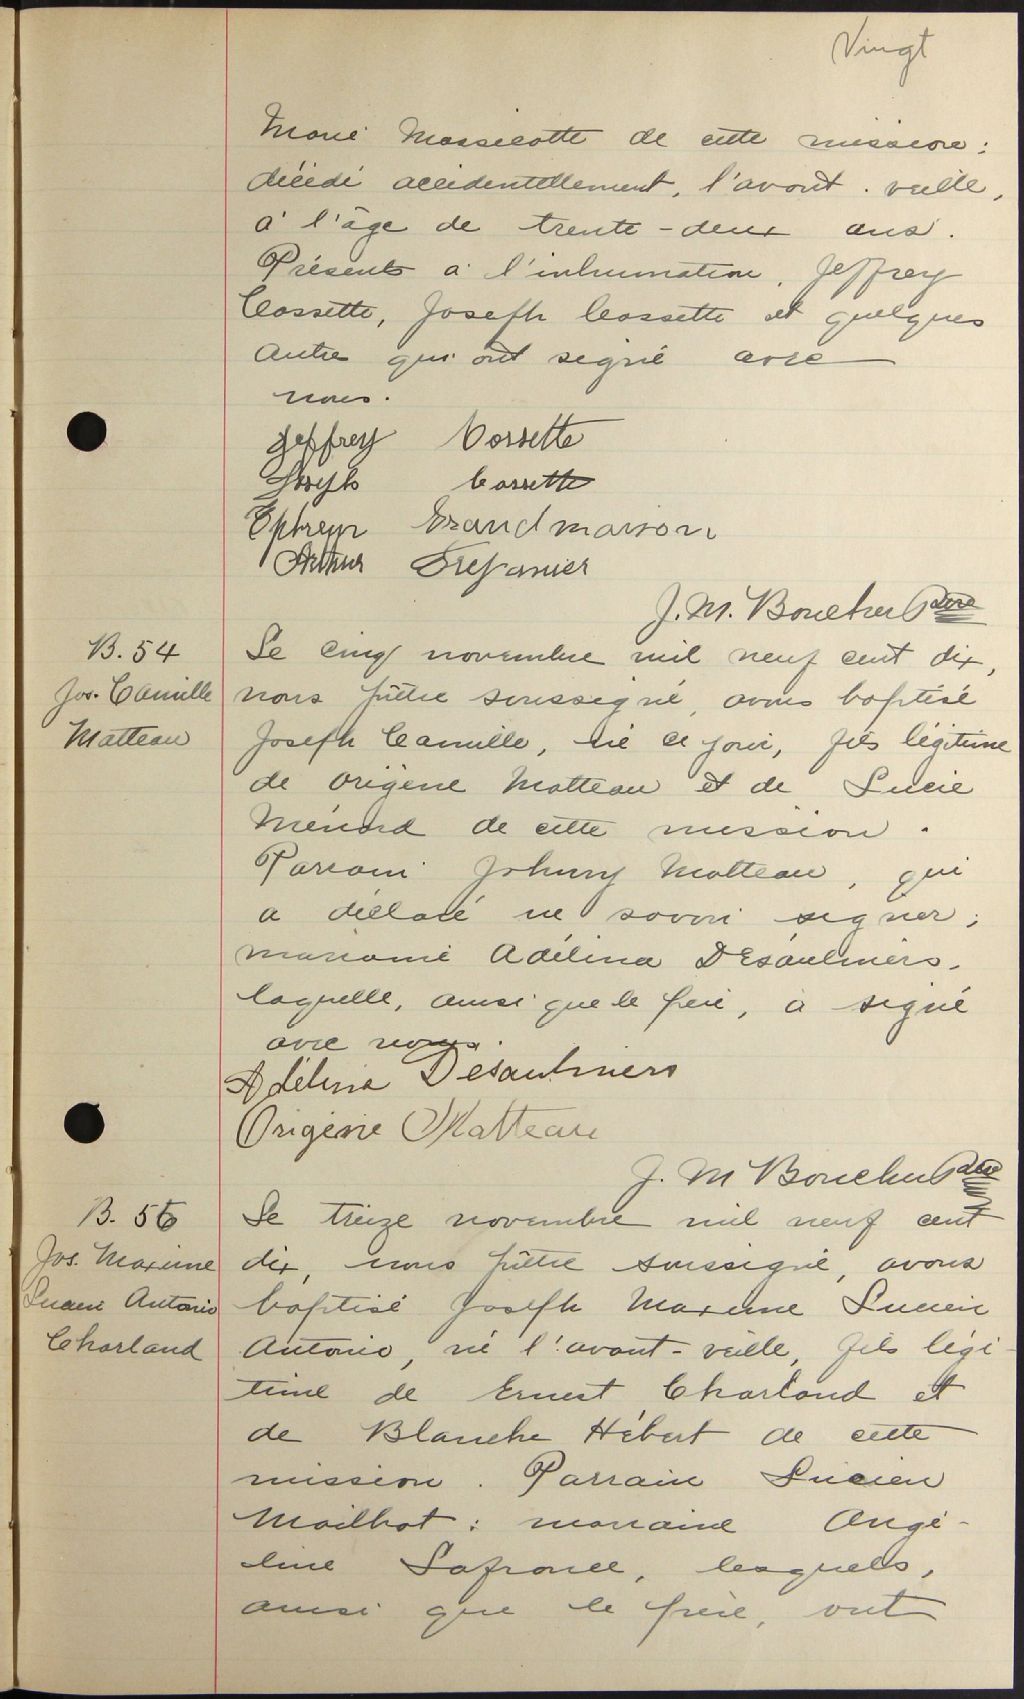 Vingt
Marie Massicotte de cette mission :
décédé accidentellement, l'avant-veille,
à l'âge de trente-deux ans.
Présents à l'inhumation, Jeffrey
Cossette, Joseph Cossette et quelques
autre qui ont signé avec
nous.
Jeffrey Cossette
Joseph Cossette
Ephrem Grandmaison
Arthur Trepanier
J. M. Boucher Ptre
B. 54
Jos. Camille
Matteau
Le cinq novembre mil neuf cent dix,
nous prêtre soussigné, avons baptisé
Joseph Camille, né ce jour, fils légitime
de Origène Matteau et de Lucie
Ménard de cette mission.
Parrain Johnny Matteau, qui
a déclaré ne savoir signer ;
marraine Adélina Désaulniers,
laquelle, ainsi que le père, a signé
avec nous.
Adélina Désaulniers
Origène Matteau
J. M Boucher Ptre
B. 55
Jos. Maxime
Lucien Antonio
Charland
Le treize novembre mil neuf cent
dix, nous prêtre soussigné, avons
baptisé Joseph Maxime Lucien
Antonio, né l'avant-veille, fils légi-
time de Ernest Charland et
de Blanche Hébert de cette
mission. Parrain Lucien
Mailhot : marraine Angé-
line Lafrance, lesquels,
ainsi que le père, ont